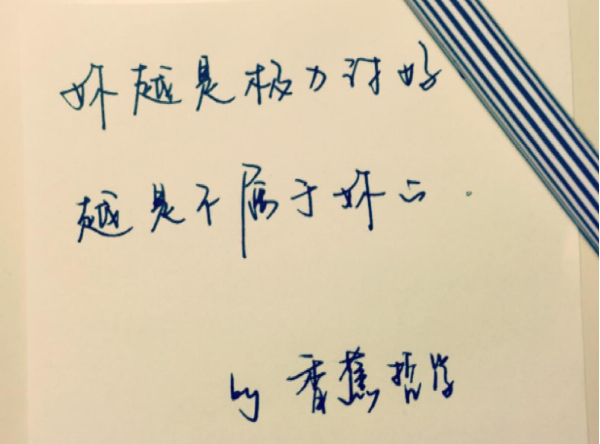 妳越是极力讨好
越是不属于妳的.
by 香蕉哲学